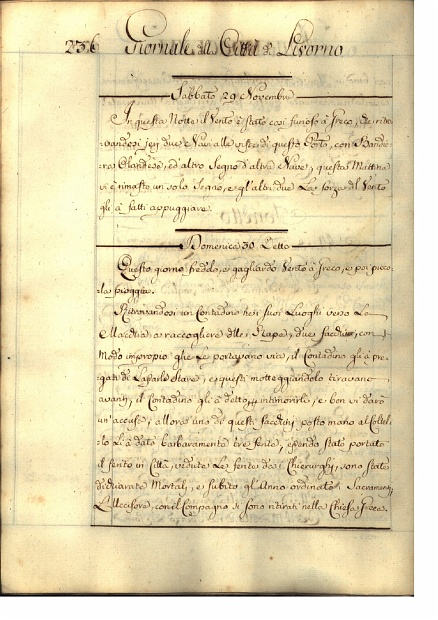 236 Giornale della Città di Livorno
Sabbato 29 Novembre
In questa Notte il Vento è stato così furioso à Greco, che ritro-
vandosi jeri due Navi alle viste di questo Porto, con Bandie-
ra Olandese, ed'altro Segno d'altra Nave, questa Mattina
vi è rimasto un solo Segno, e gl'altri due La forza del Vento
gli à fatti appuggiare.
Domenica 30 Detto
Questo giorno freddo, e gagliardo Vento à Greco, e poi picco-
la pioggia.
Ritrovandosi un Contadino ne i suoi Luoghi verso La
a raccogliere delle due con
Modo improprio glie Le portavano via, il Contadino gli à pre-
gati di Lasciarle Stare, e questi motteggiandolo tiravano
avanti, il Contadino gli à detto intimorirli, e ben vi darò
un'accusa, allora uno di questi posto mano al Coltel-
lo Li à dato barbaramente tre ferite, essendo stato portato
il ferito in Città, vedute Le ferite da Chierurghi, sono state
dichiarate Mortali, e subito gl'Anno ordinato i Sacramenti,
L'Uccisore, con il Compagno si sono ritirati nella Chiesa Greca.